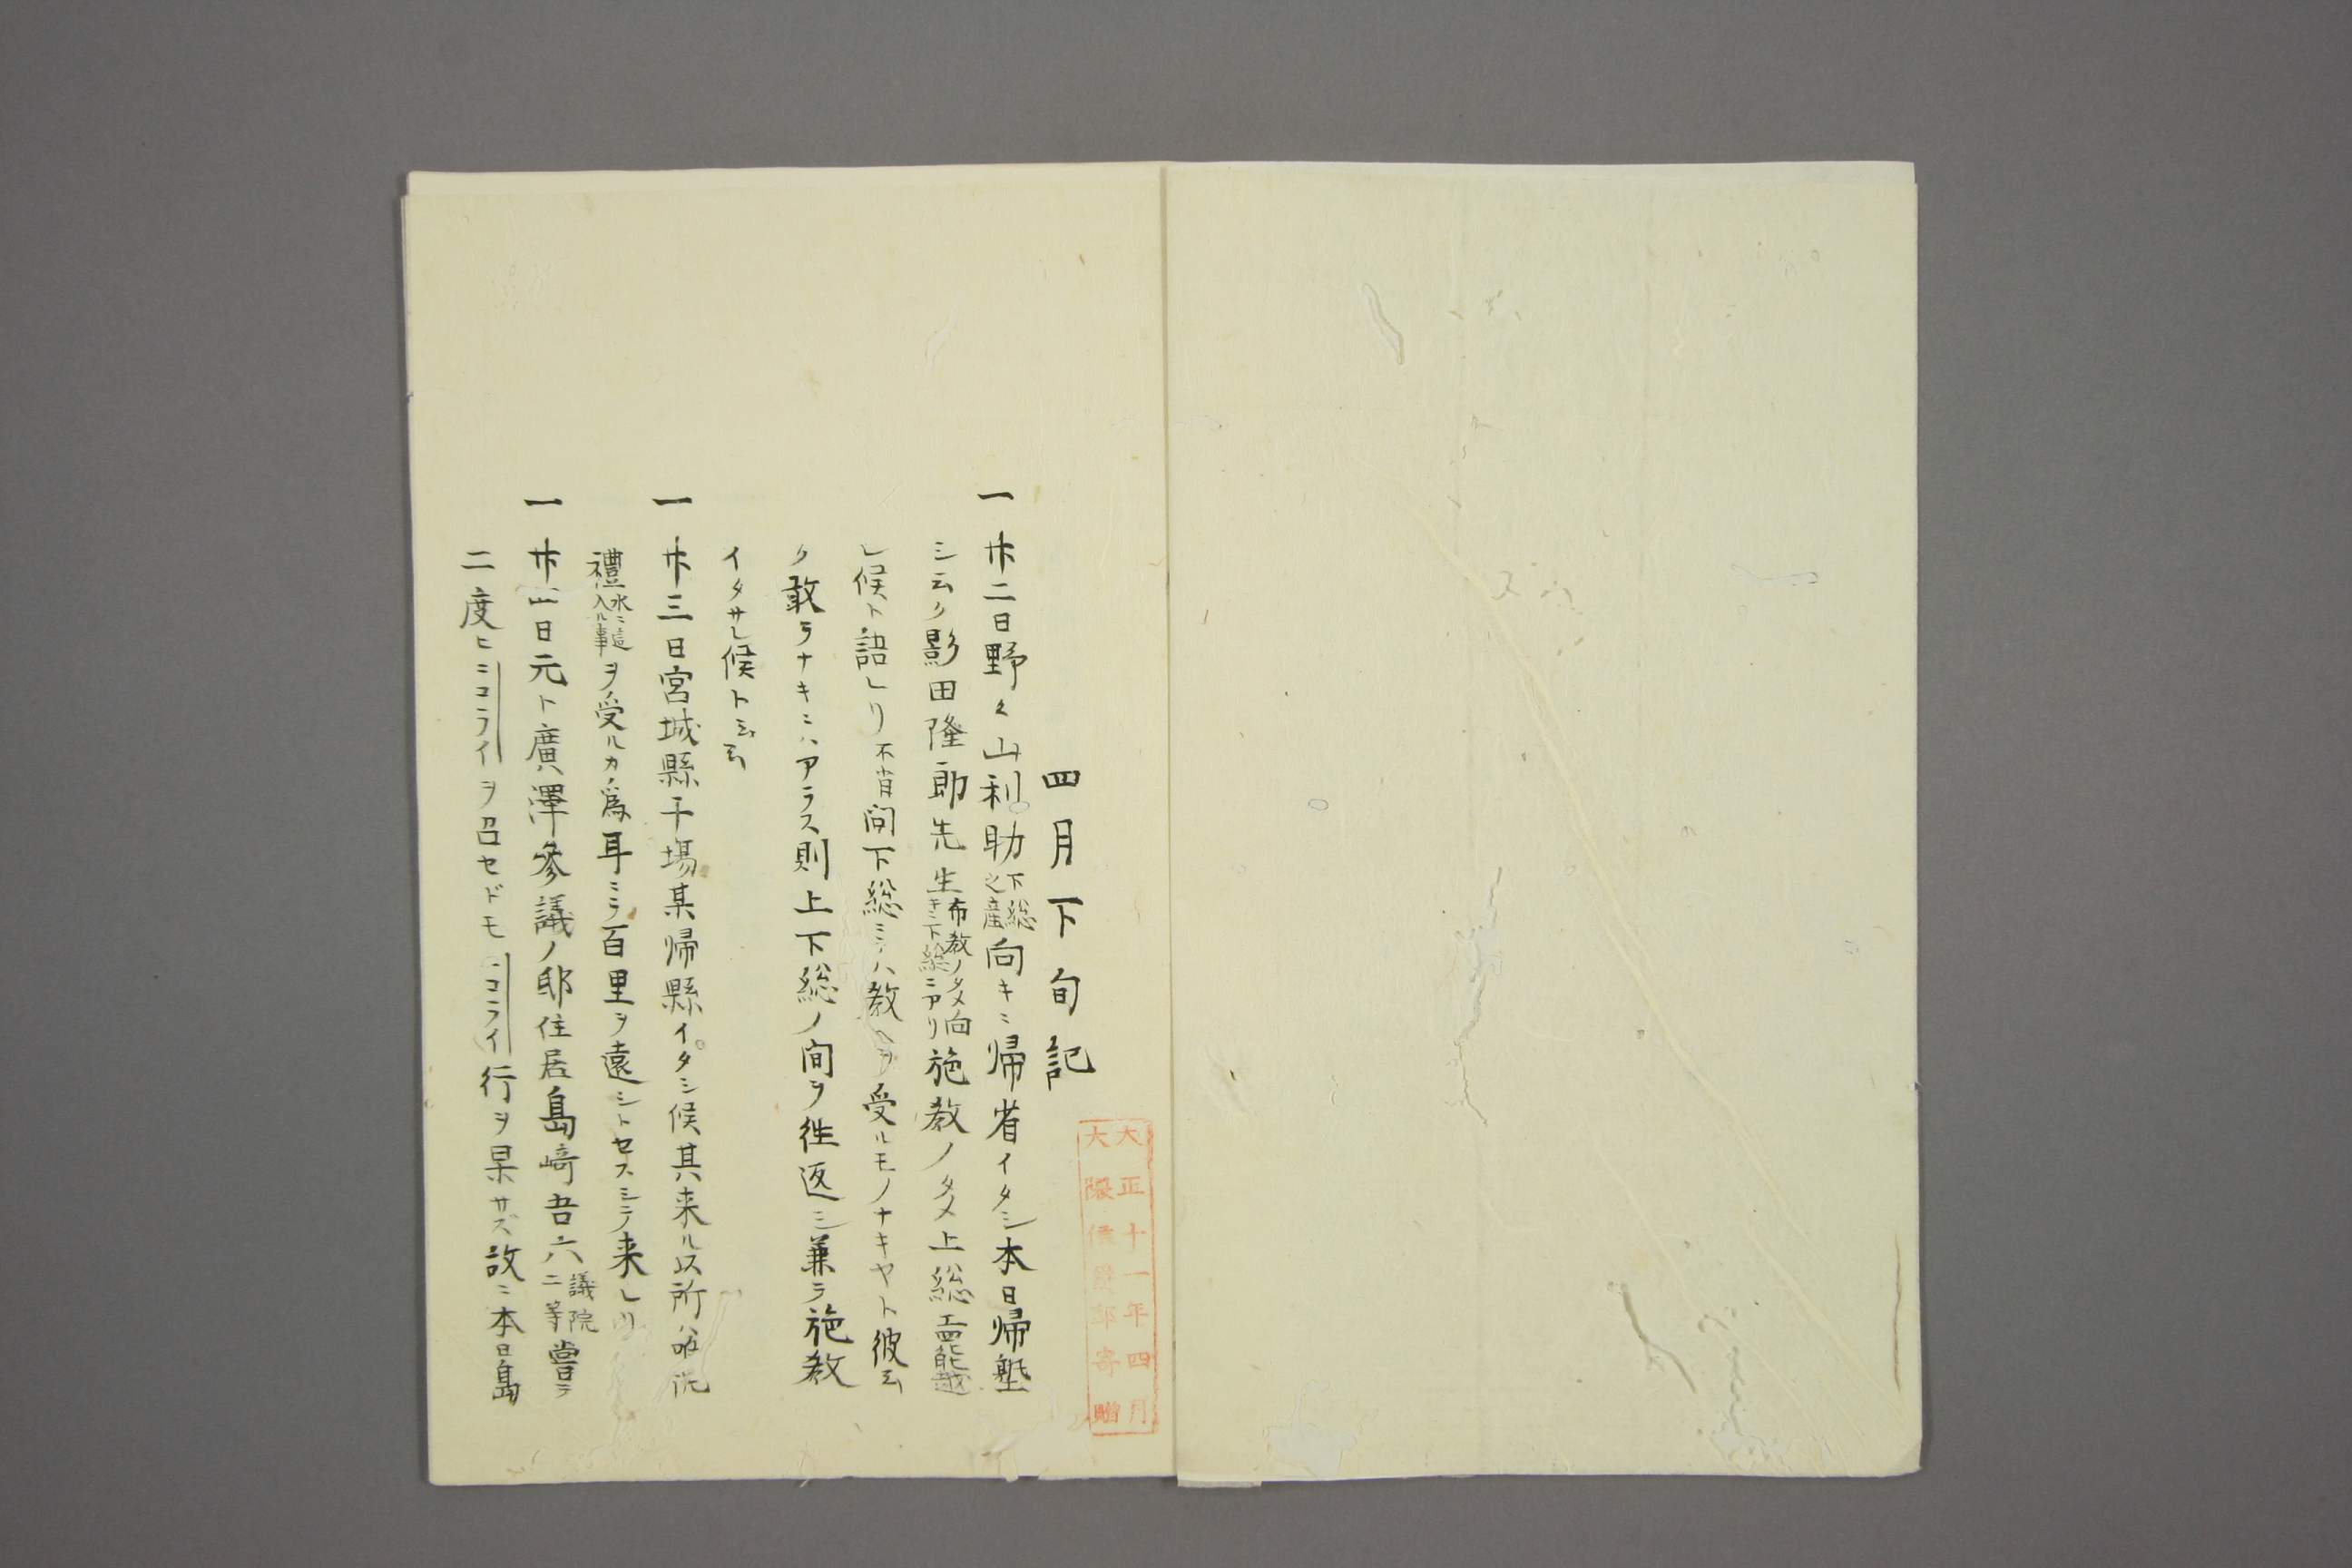 四月下旬記
一廿二日野々山利助下総之産向キニ帰省イタシ本日帰塾
シ云ク影田隆郎先生布教ノタメ向キニ下総ニアリ施教ノタメ上総エ罷越
レ候ト語レリ不肖問下総ニテハ教ヲ受ルモノナキヤト彼云
ク敢テナキニハアラス則上下総ノ間ヲ往返シ兼テ施教
イタサレ候ト云云
一廿三日宮城縣干場某帰縣イタシ候其来ル以所ハ唯洗
禮水ニ入ル事ヲ受ルカ為耳ニテ百里ヲ遠シトセスシテ来レリ
一廿四日元ト廣澤參議ノ邸住居島﨑吾六議院二等嘗テ
二度ヒニコライヲ召セドモニコライ行ヲ果サズ故ニ本日島
大正十一年四月
大隈信常郎寄贈